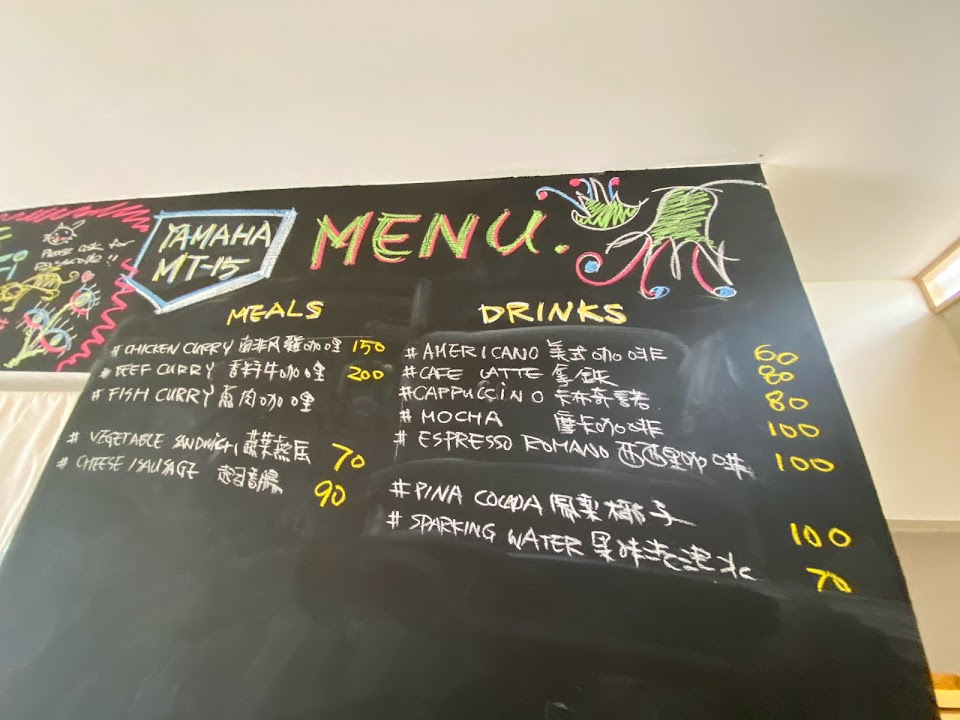 Please ask for
YAMAHA
MT-15
MENU.
MEALS
# CHICKEN CURRY 南非風雞咖哩 150
# BEEF CURRY 香料牛咖哩 200
# FISH CURRY 魚肉咖哩
# VEGETABLE SANDWICH 70
# CHEESE / SAUSAGE 起司香腸 90
DRINKS
# AMERICANO 美式咖啡 60
# CAFE LATTE 拿鐵 80
# CAPPUCCINO 卡布奇諾 80
# MOCHA 摩卡咖啡 100
# ESPRESSO ROMANO 西西里咖啡 100
# PINA COLADA 鳳梨椰子 100
# SPARKING WATER 果味氣泡水 70